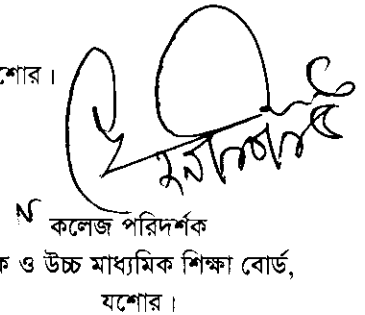 শোর।
কলেজ পরিদর্শক
ক ও উচ্চ মাধ্যমিক শিক্ষা বোর্ড,
যশোর।